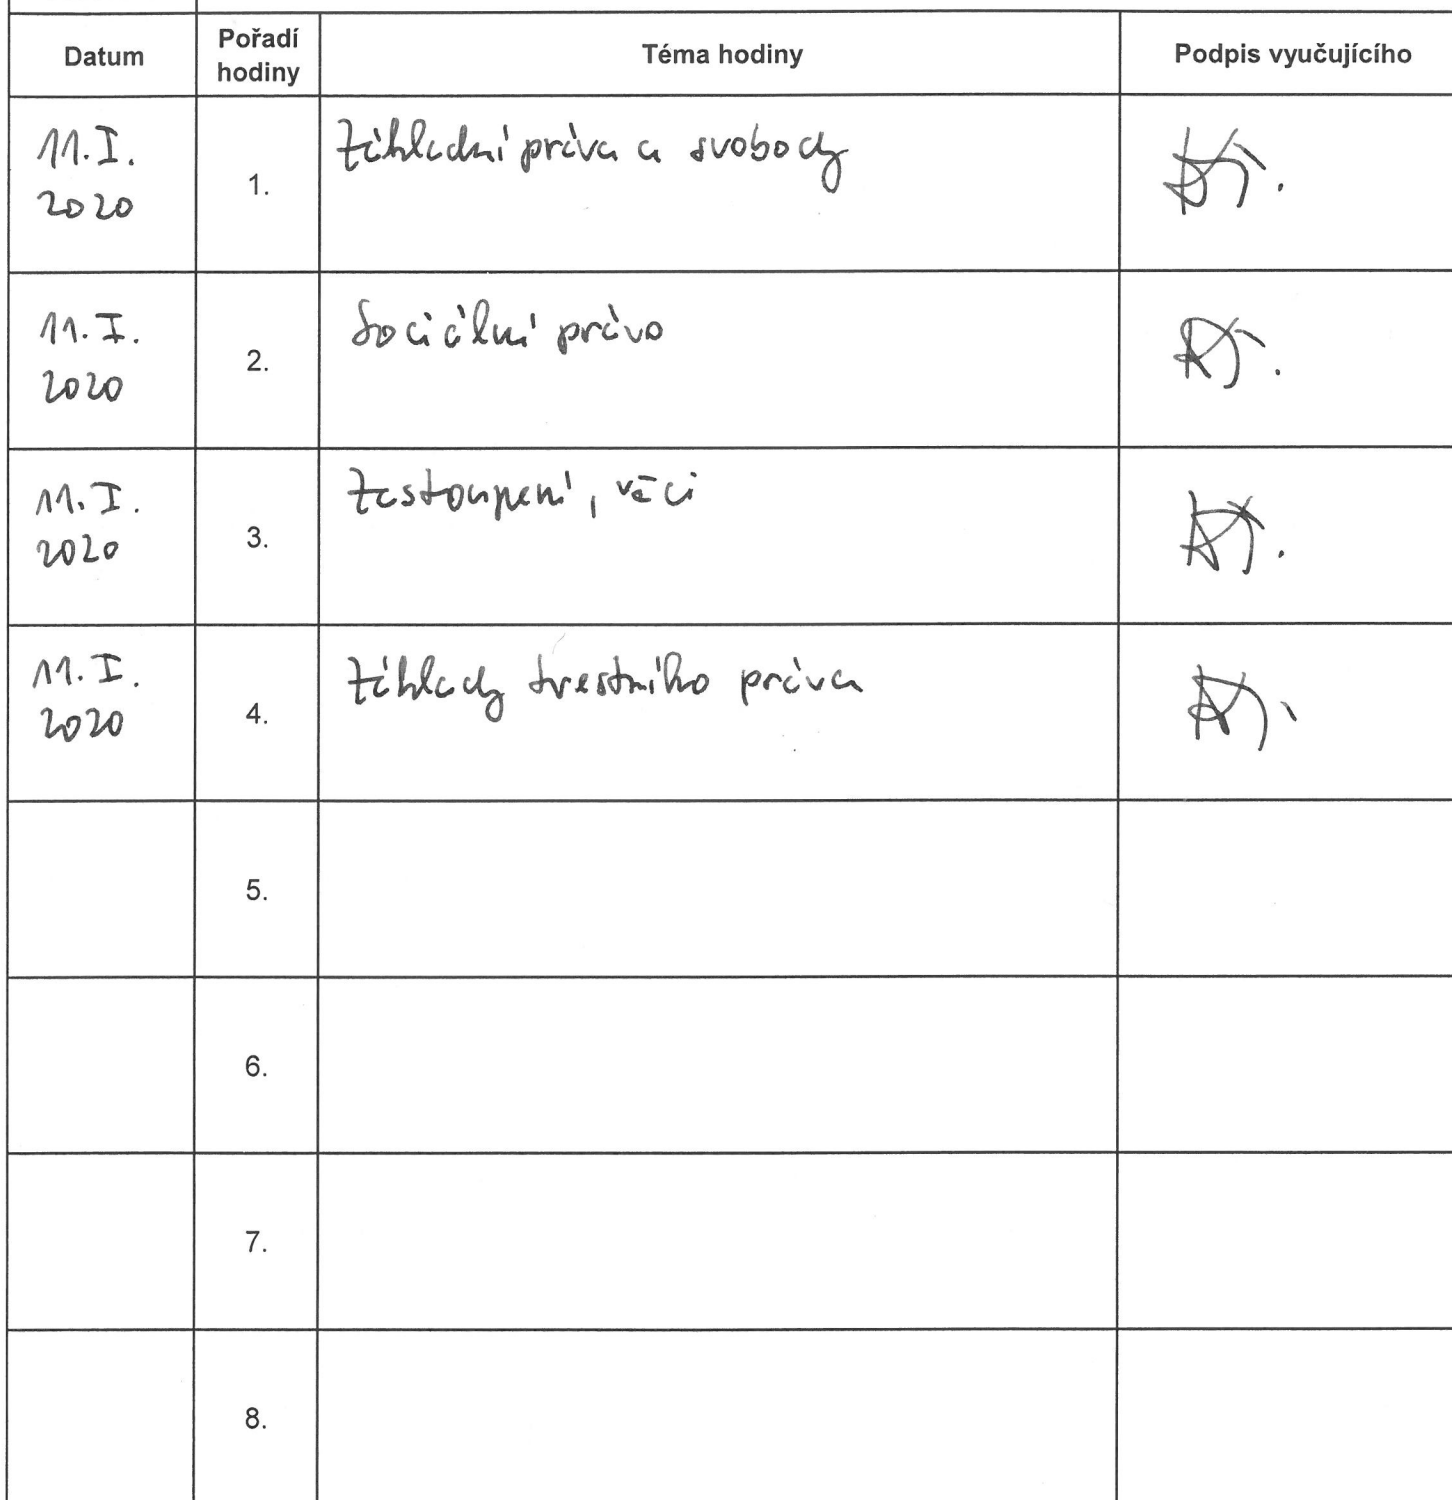 Datum Pořadí hodiny Téma hodiny Podpis vyučujícího
11. I. 2020 1. Základní práva a svobody
11. I. 2020 2. Sociální právo
11. I. 2020 3. Zastoupení, věci
11. I. 2020 4. Základy trestního práva
5.
6.
7.
8.